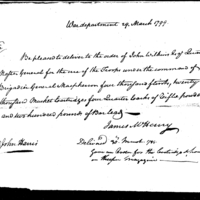 War department 29. March 1799
Sir,
Be pleased to deliver to the order of John Wilkins Jr. Quarter
Master General for the use of the Troops under the command of
Brigadier General Macpherson four thousand flints, twenty
thousand Musket Cartridges four Quarter Casks of Rifle powder
and two hundred pounds of Bar lead.
James McHenry
John Harris
Delivered 29 March 1799
Gave an Order for the Cartridges
in the Magazine